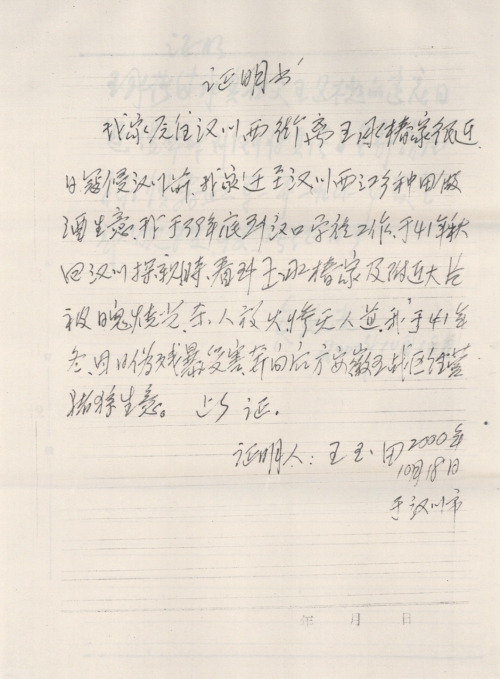 证明书
我家原住汉川西街,离王承椿家很近,
日寇侵汉川前,我家迁至汉川西江乡种田做
酒生意,我于39年底到汉口学徒工作,于41年秋
回汉川探亲时,看到王承椿家及附近大片
被日鬼烧光,杀人放火惨无人道,我于41年
冬,因日伪残暴受害,奔向后方安徽五战区经营
生意。 以上证。
证明人:王玉田 2000年
10月18日
于汉川市
年 月 日